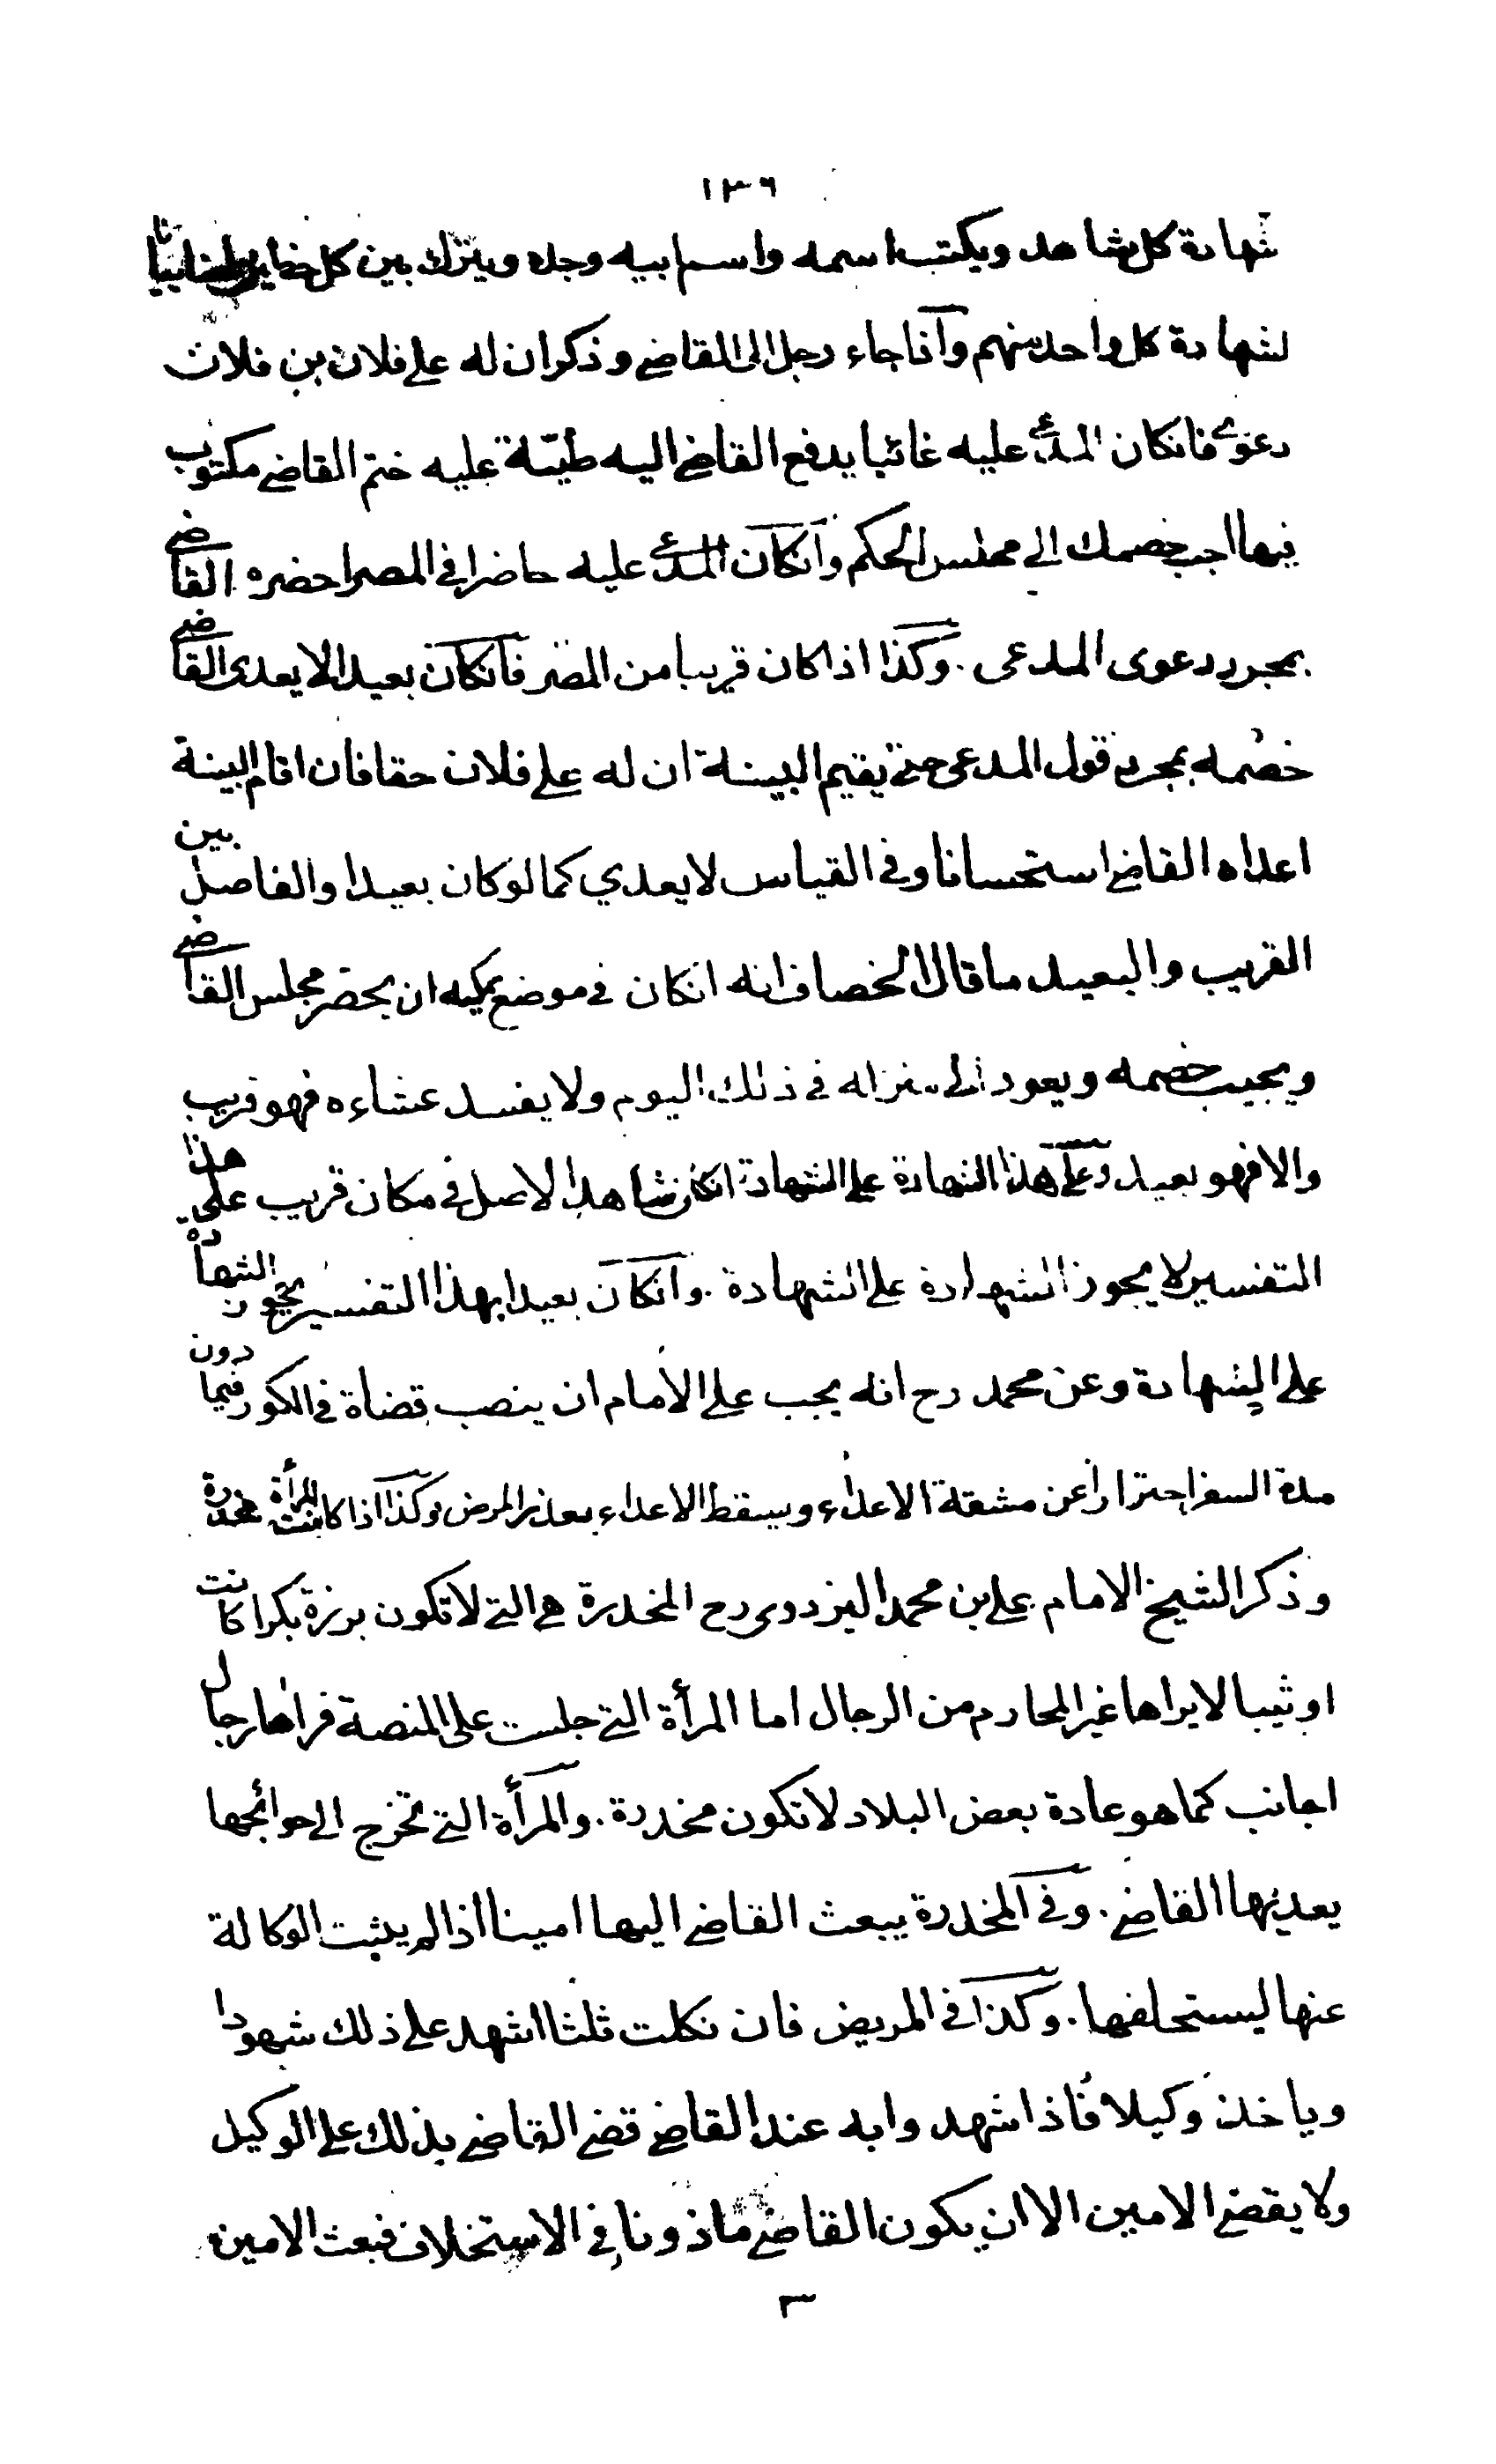 ١٣٦
شهادة كل شاهد ويكتب اسمه واسم ابيه وجده ويترك بين كل
لشهادة كل واحد منهم وآذا جاء رجل الى القاضي وذكر ان له علي فلان بن فلان
دعوى فانكان المدعي عليه غائبا يدفع القاضي اليه طينة عليه ختم القاضي مكتوب
فيها اجب خصمك الي مجلس الحكم وآنكان المدعي عليه حاضرا في المصر احضره القاضي
بمجرد دعوى المدعى . وكذا اذا كان قريبا من المصر فانكان بعيدا لا يعدى القاضي
خصمه بمجرد قول المدعى حتي يقيم البينة ان له علي فلان حقا فان اقام البينة
اعداه القاضي استحسانا وفي القياس لا يعدي كما لو كان بعيدا والفاصل بين
القريب والبعيد ما قال الخصاف انه انكان في موضع يمكنه ان يحضر مجلس القاضي
ويجيب خصمه ويعود الى منزله في ذلك اليوم ولا يفسد عشاءه فهو قريب
والا فهو بعيد وعلي هذا الشهادة علي الشهادة انكان شاهد الاصل في مكان قريب علي هذا
التفسير لا يجوز الشهادة علي الشهادة . وانكان بعيدا بهذا التفسير يجوز الشهادة
علي الشهادة وعن محمد رح انه يجب علي الامام ان ينصب قضاة في الكور فيما دون
مدة السفر احترازا عن مشقة الاعداء ويسقط الاعداء بعذر المرض وكذا اذا كانت المرأة مخدرة
وذكر الشيخ الامام علي بن محمد البزدوى رح المخدرة هي التي لا تكون برزة بكرا كانت
او ثيبا لا يراها غير المحارم من الرجال اما المرأة التي جلست علي المنصة فراها رجال
اجانب كما هو عادة بعض البلاد لا تكون مخدرة . والمرأة التي تخرج الي حوائجها
يعديها القاضي . وفي المخدرة يبعث القاضي اليها امينا اذا لم يثبت الوكالة
عنها ليستحلفها . وكذا في المريض فان نكلت ثلثا اشهد علي ذلك شهودا
وياخذ وكيلا فاذا شهدوا به عند القاضي قضي القاضي بذلك علي الوكيل
ولا يقضي الامين الا ان يكون القاضي ماذونا في الاستخلاف فبعث الامين